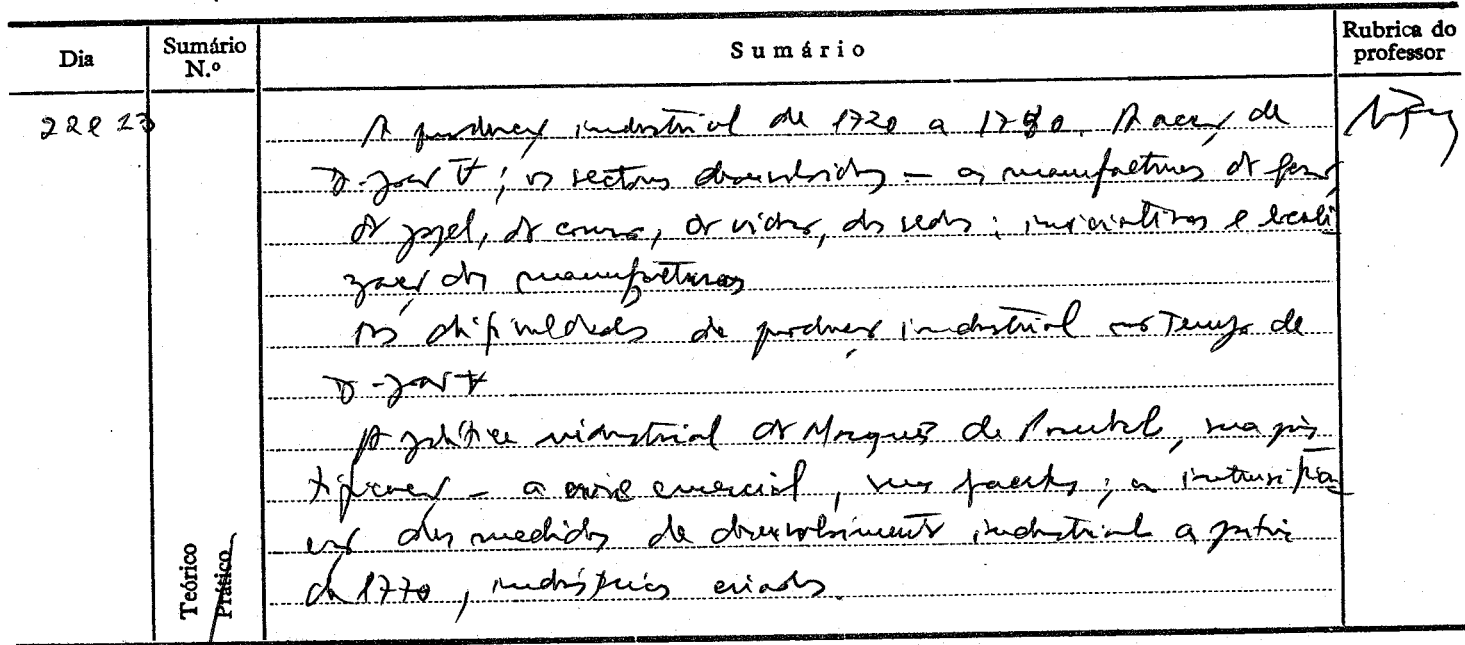 Dia
Sumário N.º
Sumário
Rubrica do professor
22 e 23
A produção industrial de 1720 a 1780. A acção de
D. João V; os sectores desenvolvidos – as manufacturas do ferro,
do papel, do couro, do vidro, das sedas; iniciativas e locali
zação das manufacturas
As dificuldades da produção industrial no tempo de
D. João V
A política industrial do Marquês de Pombal, sua jus
tificação – a crise comercial, suas facetas; a intensifica
ção das medidas de desenvolvimento industrial a partir
de 1770, indústrias criadas.
Teórico
Prático